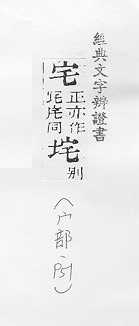 經典文字辨證書
宅 正亦作
同 垞 別
(宀部·P51)